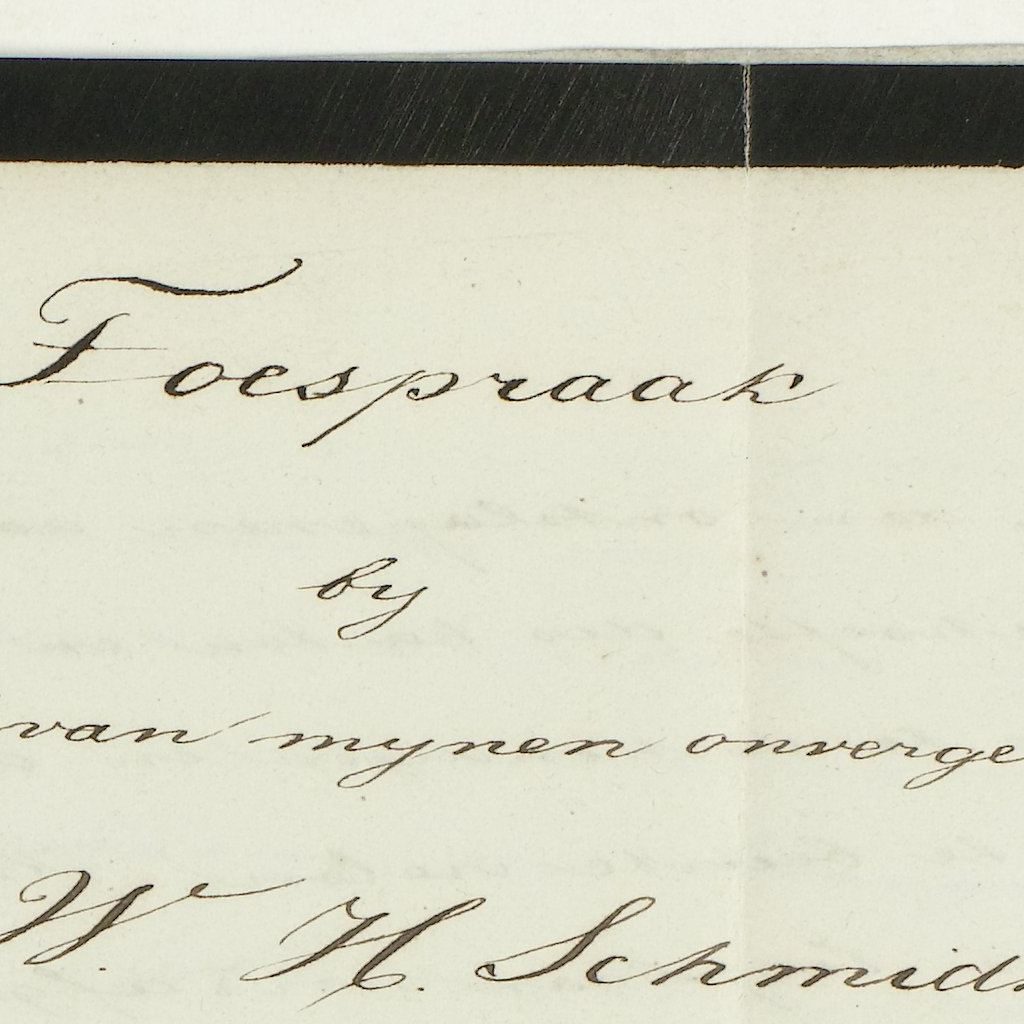 Toespraak
by
van mynen onverge
W. H. Schmidt